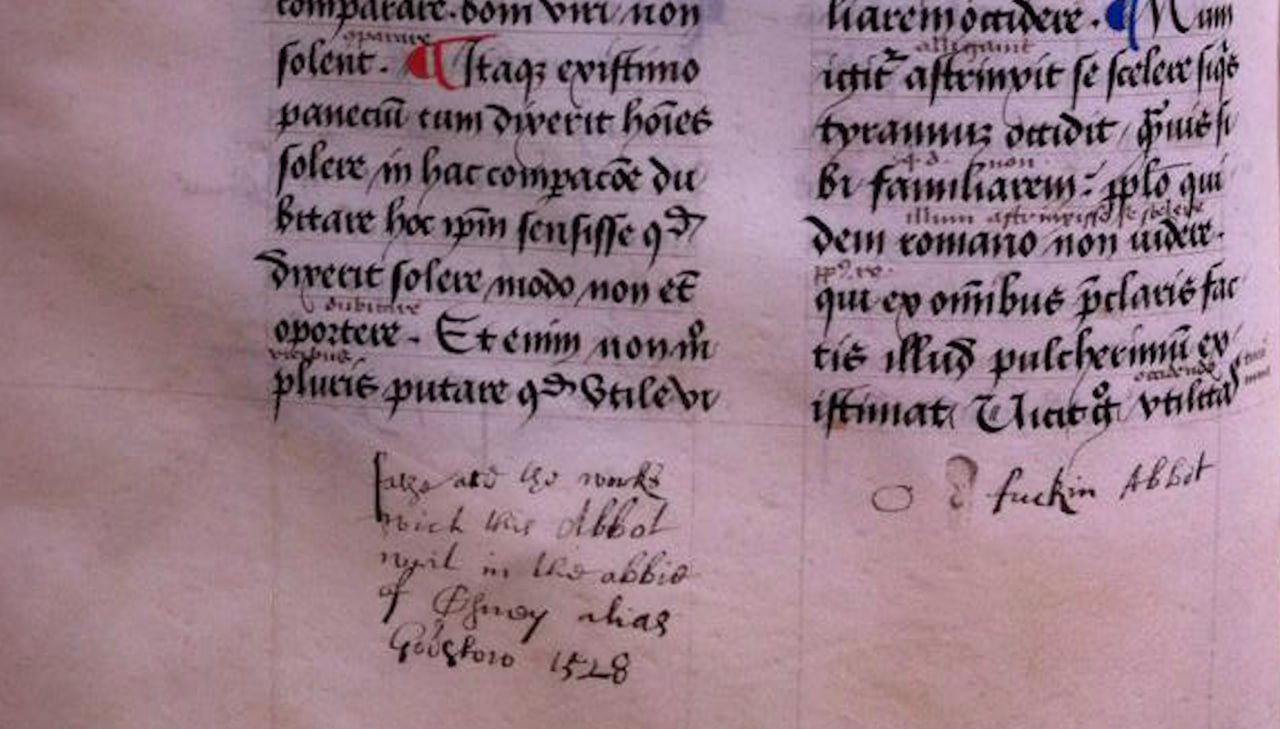 comparare. dom viri non
solent. ¶ Itaqꝫ existimo
paneciū cum dixerit hoīes
solere in hac comparacōe du
bitare hoc ipm̄ sensisse qd̄
dixerit solere modo non et̄
dubitare
oportere. Et enim non mͦ
pluris putare qd̄ Utile vi
and the works
wich this Abbot
writ in the abbie
of Osney alias
Godstow 1528
liarem occidere. ¶ Num
igit᷑ astrinxit se scelere siqͥs
tyrannuꝫ occidit / qͣuis fa
non
bi familiarem: pplo qui
illum astrinxisse se scelere
dem romano non videt᷑.
qui ex omībus p̄claris fac
tis illud pulcherimū ex
istimat. Vicit gͦ vtilitas
O d fuckin Abbot